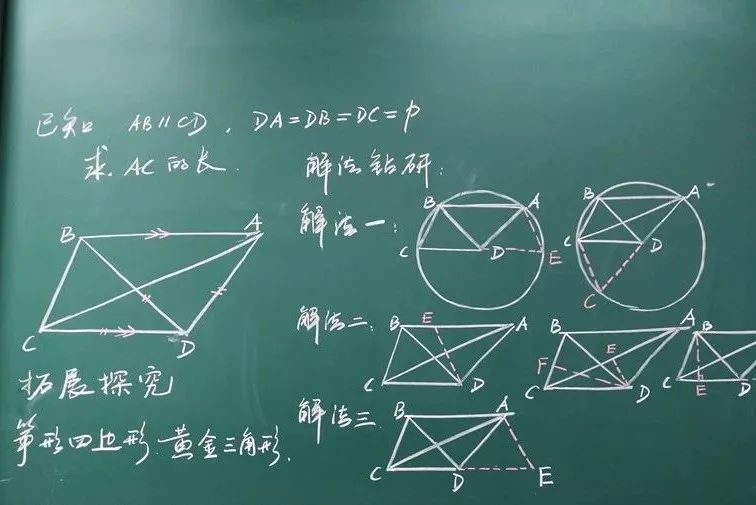 已知 AB∥CD, DA=DB=DC=p
求 AC的长.
解法钻研:
解法一:
B A
C D E
B A
C D
C
B A
C D
解法二:
B E A
C D
B A
F E
C D
B
C E
拓展探究
筝形四边形.黄金三角形.
解法三
B A
C D E